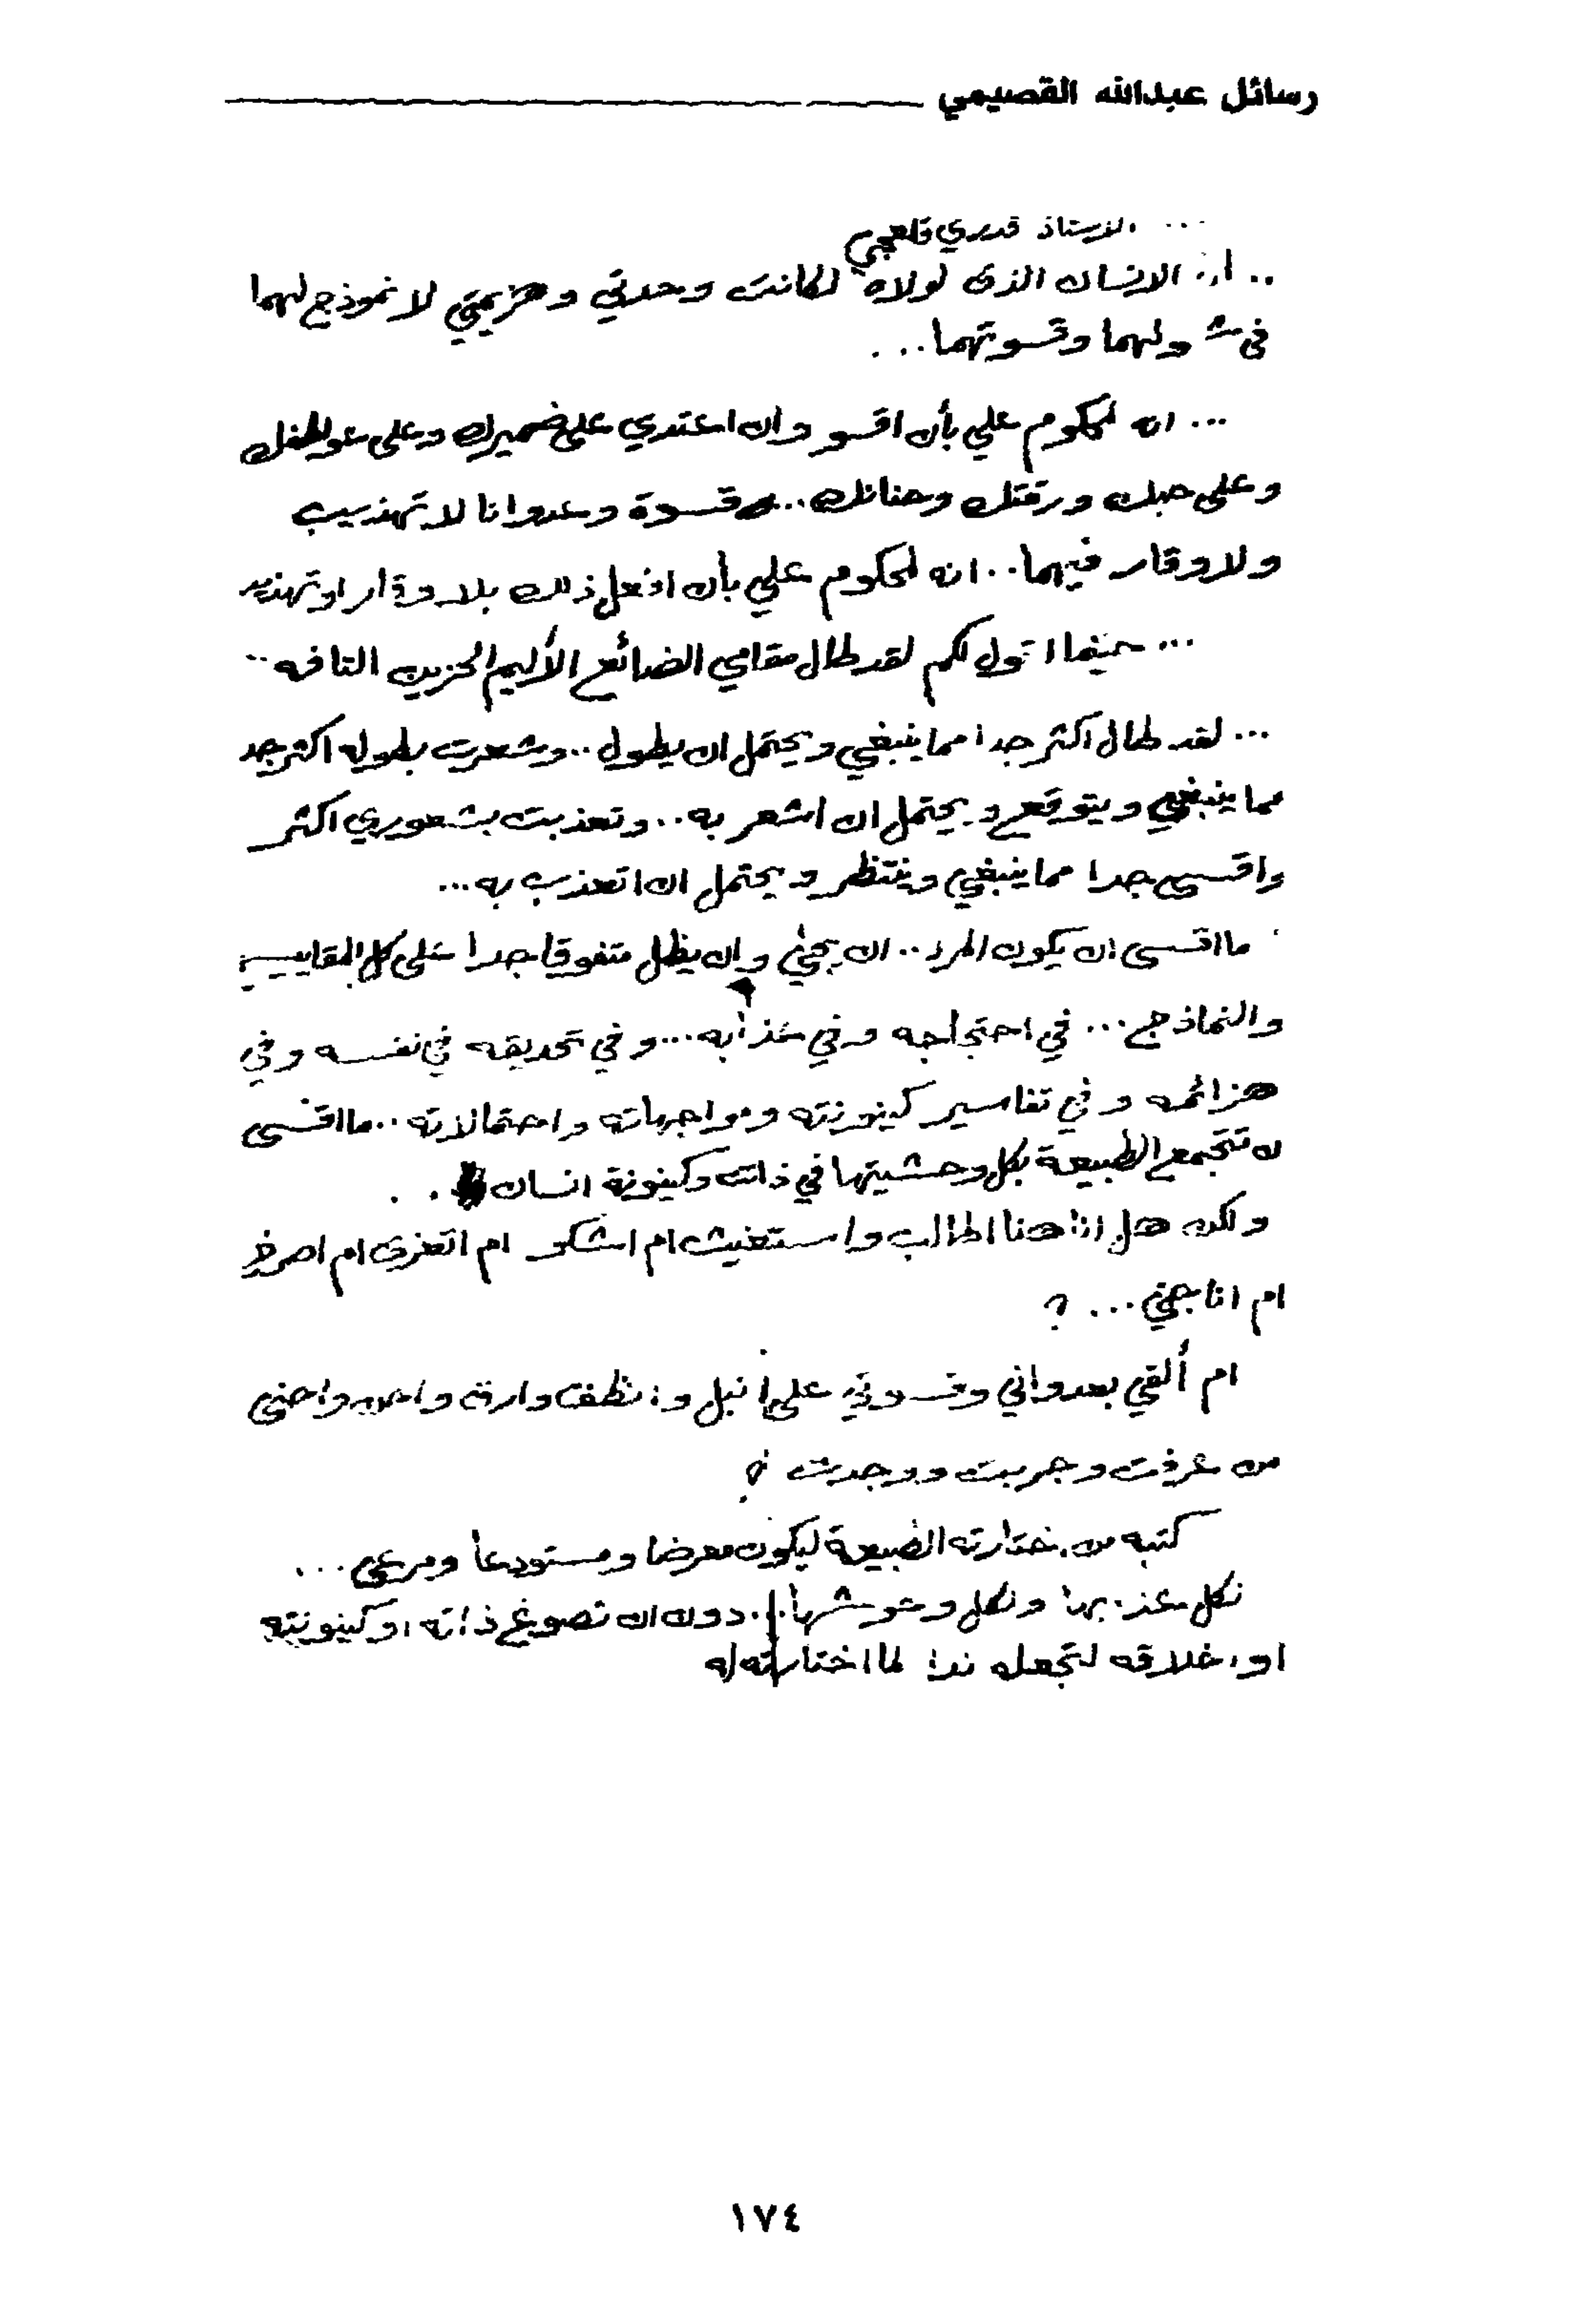 رسائل عبدالله القصيمي
... الاستاذ قدري قلعجي
.. الانسان الذى لولاه لكانت وحدتي وهزيمتي لا نموذج لهما
فى شمولهما وقسوتهما...
... انه لمحكوم علي بأن اقسو وان اعتدي على ضميرك وعلى عواطفك
وعلى حبك ورقتك وحنانك... قسوة وعدوانا لا تهذيب
ولا وقار فيهما.. انه لمحكوم علي بأن افعل ذلك بلا وقار او تهذيب
... حينما اقول لكم لقد طال مقامي الضائع الأليم الحزين التافه..
... لقد طال اكثر جدا مما ينبغي ويحتمل ان يطول.. وشعرت بطوله اكثر جد
مما ينبغي ويتوقع ويحتمل ان اشعر به.. وتعذبت بشعوري اكثر
واقسى جدا مما ينبغي وينتظر ويحتمل ان اتعذب به...
ما اقسى ان يكون المرء.. ان يجئ وان يظل متفوقا جدا على كل المقاييس
والنماذج... في احتجاجه وفي عذابه... وفي تحديقه في نفسه وفي
هزائمه وفي تفاسير كينونته ومواجهاته واحتمالاته.. ما اقسى
ان تتجمع الطبيعة بكل وحشيتها في ذات وكينونة انسان ..
ولكن هل انا هنا اطالب واستغيث ام اشكو ام اتعزى ام اصرخ
ام انا جني... ؟
ام ألقي بعدواني وقسوتي على انبل وانظف وارق واحن
من عرفت وجربت ووجدت ؟
كتبه من اختارته الطبيعة ليكون معرضا ومستودعا ومرعى...
لكل عذابها ولكل وحوشها... دون ان تصوغ ذاته او كينونته
او اخلاقه لتجعله ندا لما اختارته له
١٧٤